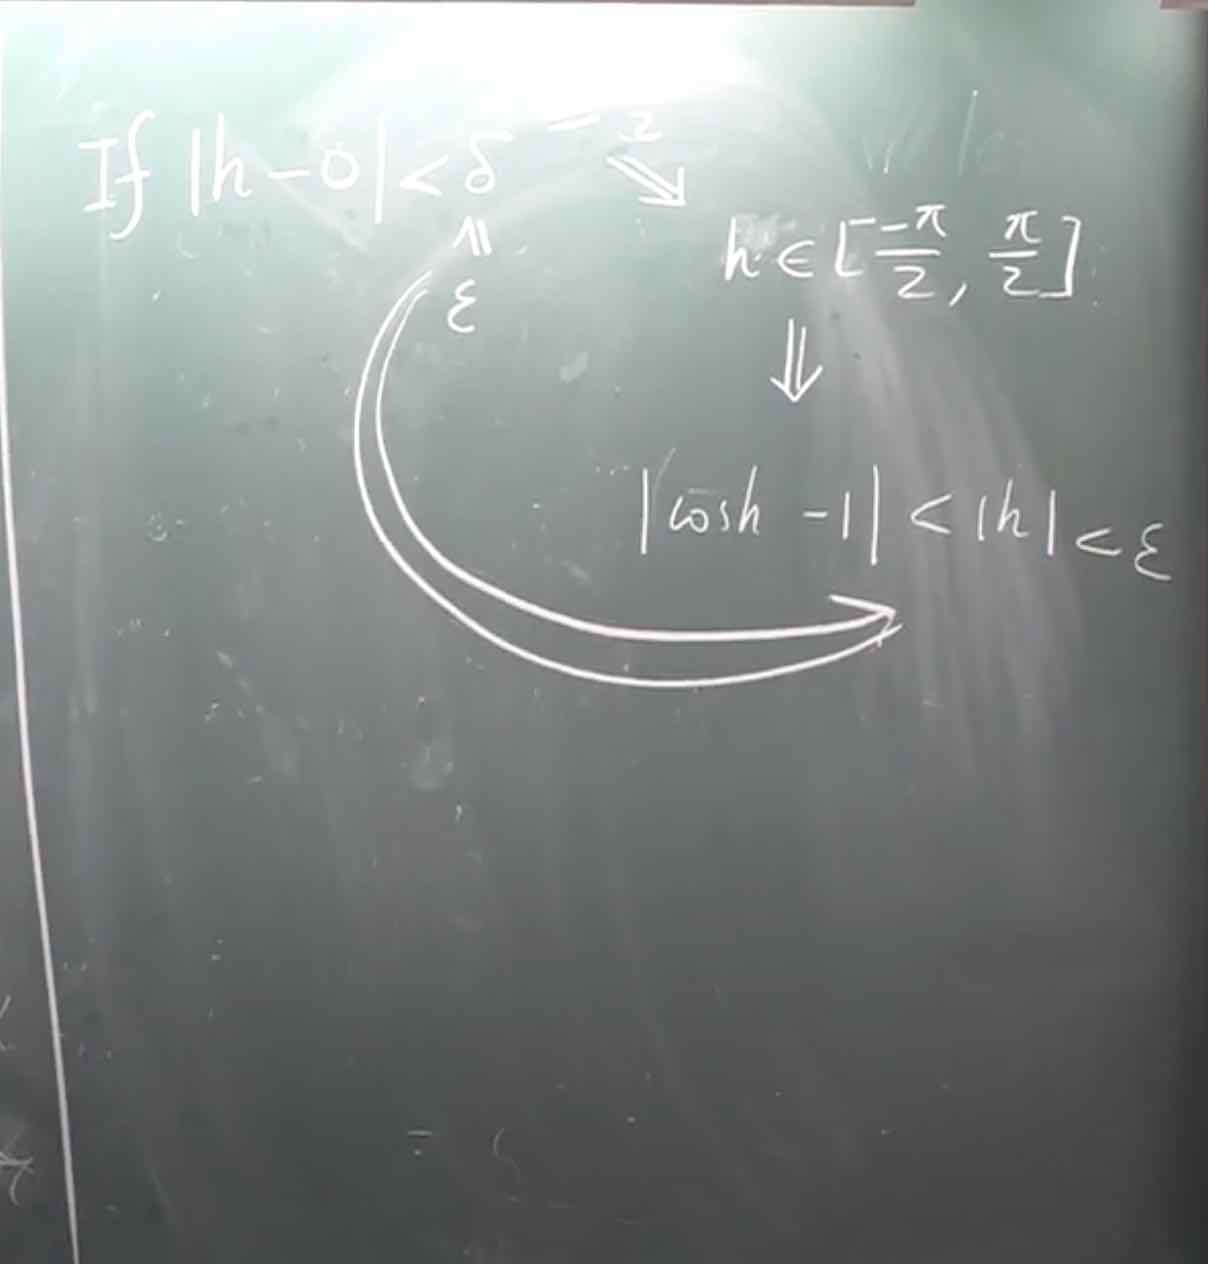 If |h-0| < δ
≤ π/2
⇒
h ∈ [-π/2, π/2]
ε
⇓
|cosh -1| < |h| < ε